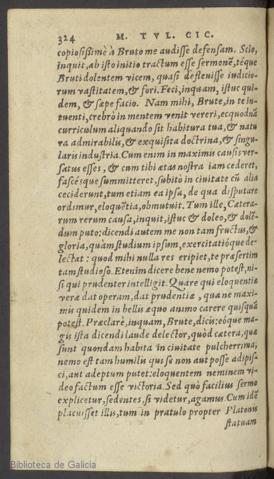 324 M. TVL. CIC.
copiosissimè à Bruto me audisse defensam. Scio,
inquit, ab isto initio tractum esse sermonē, téque
Bruti dolentem vicem, quasi deflevisse iudicio-
rum vastitatem, & fori. Feci, inquam, istuc qui-
dem, & sæpe facio. Nam mihi, Brute, in te in-
tuenti, crebrò in mentem venit vereri, ecquodnā
curriculum aliquando sit habitura tua, & natu
ra admirabilis, & exquisita doctrina, & singu-
laris industria. Cum enim in maximis causis ver-
satus esses, & cum tibi ætas nostra iam cederet,
fascésque summitteret, subitò in ciuitate cū alia
ceciderunt, tum etiam ea ipsa, de qua disputare
ordimur, eloquētia, obmutuit. Tum ille, Cetera-
rum rerum causa, inquit, istuc & doleo, & dolē-
dum puto: dicendi autem me non tam fructus, &
gloria, quàm studium ipsum, exercitatióque de-
lectat: quod mihi nulla res eripiet, te præsertim
tam studioso. Etenim dicere bene nemo potest, ni-
si qui prudenter intelligit. Quare qui eloquentiæ
veræ dat operam, dat prudentiæ, qua ne maxi-
mis quidem in bellis æquo animo carere quisquā
potest. Præclarè, inquam, Brute, dicis: eóque ma-
gis ista dicendi laude delector, quòd cætera, quæ
sunt quondam habita in ciuitate pulcherrima,
nemo est tam humilis qui se non aut posse adipis-
ci, aut adeptum putet: eloquentem neminem vi-
deo factum esse victoria. Sed quò facilius sermo
explicetur, sedentes, si videtur, agamus. Cum idē
placuisset illis, tum in pratulo propter Platonis
statuam
Biblioteca de Galicia